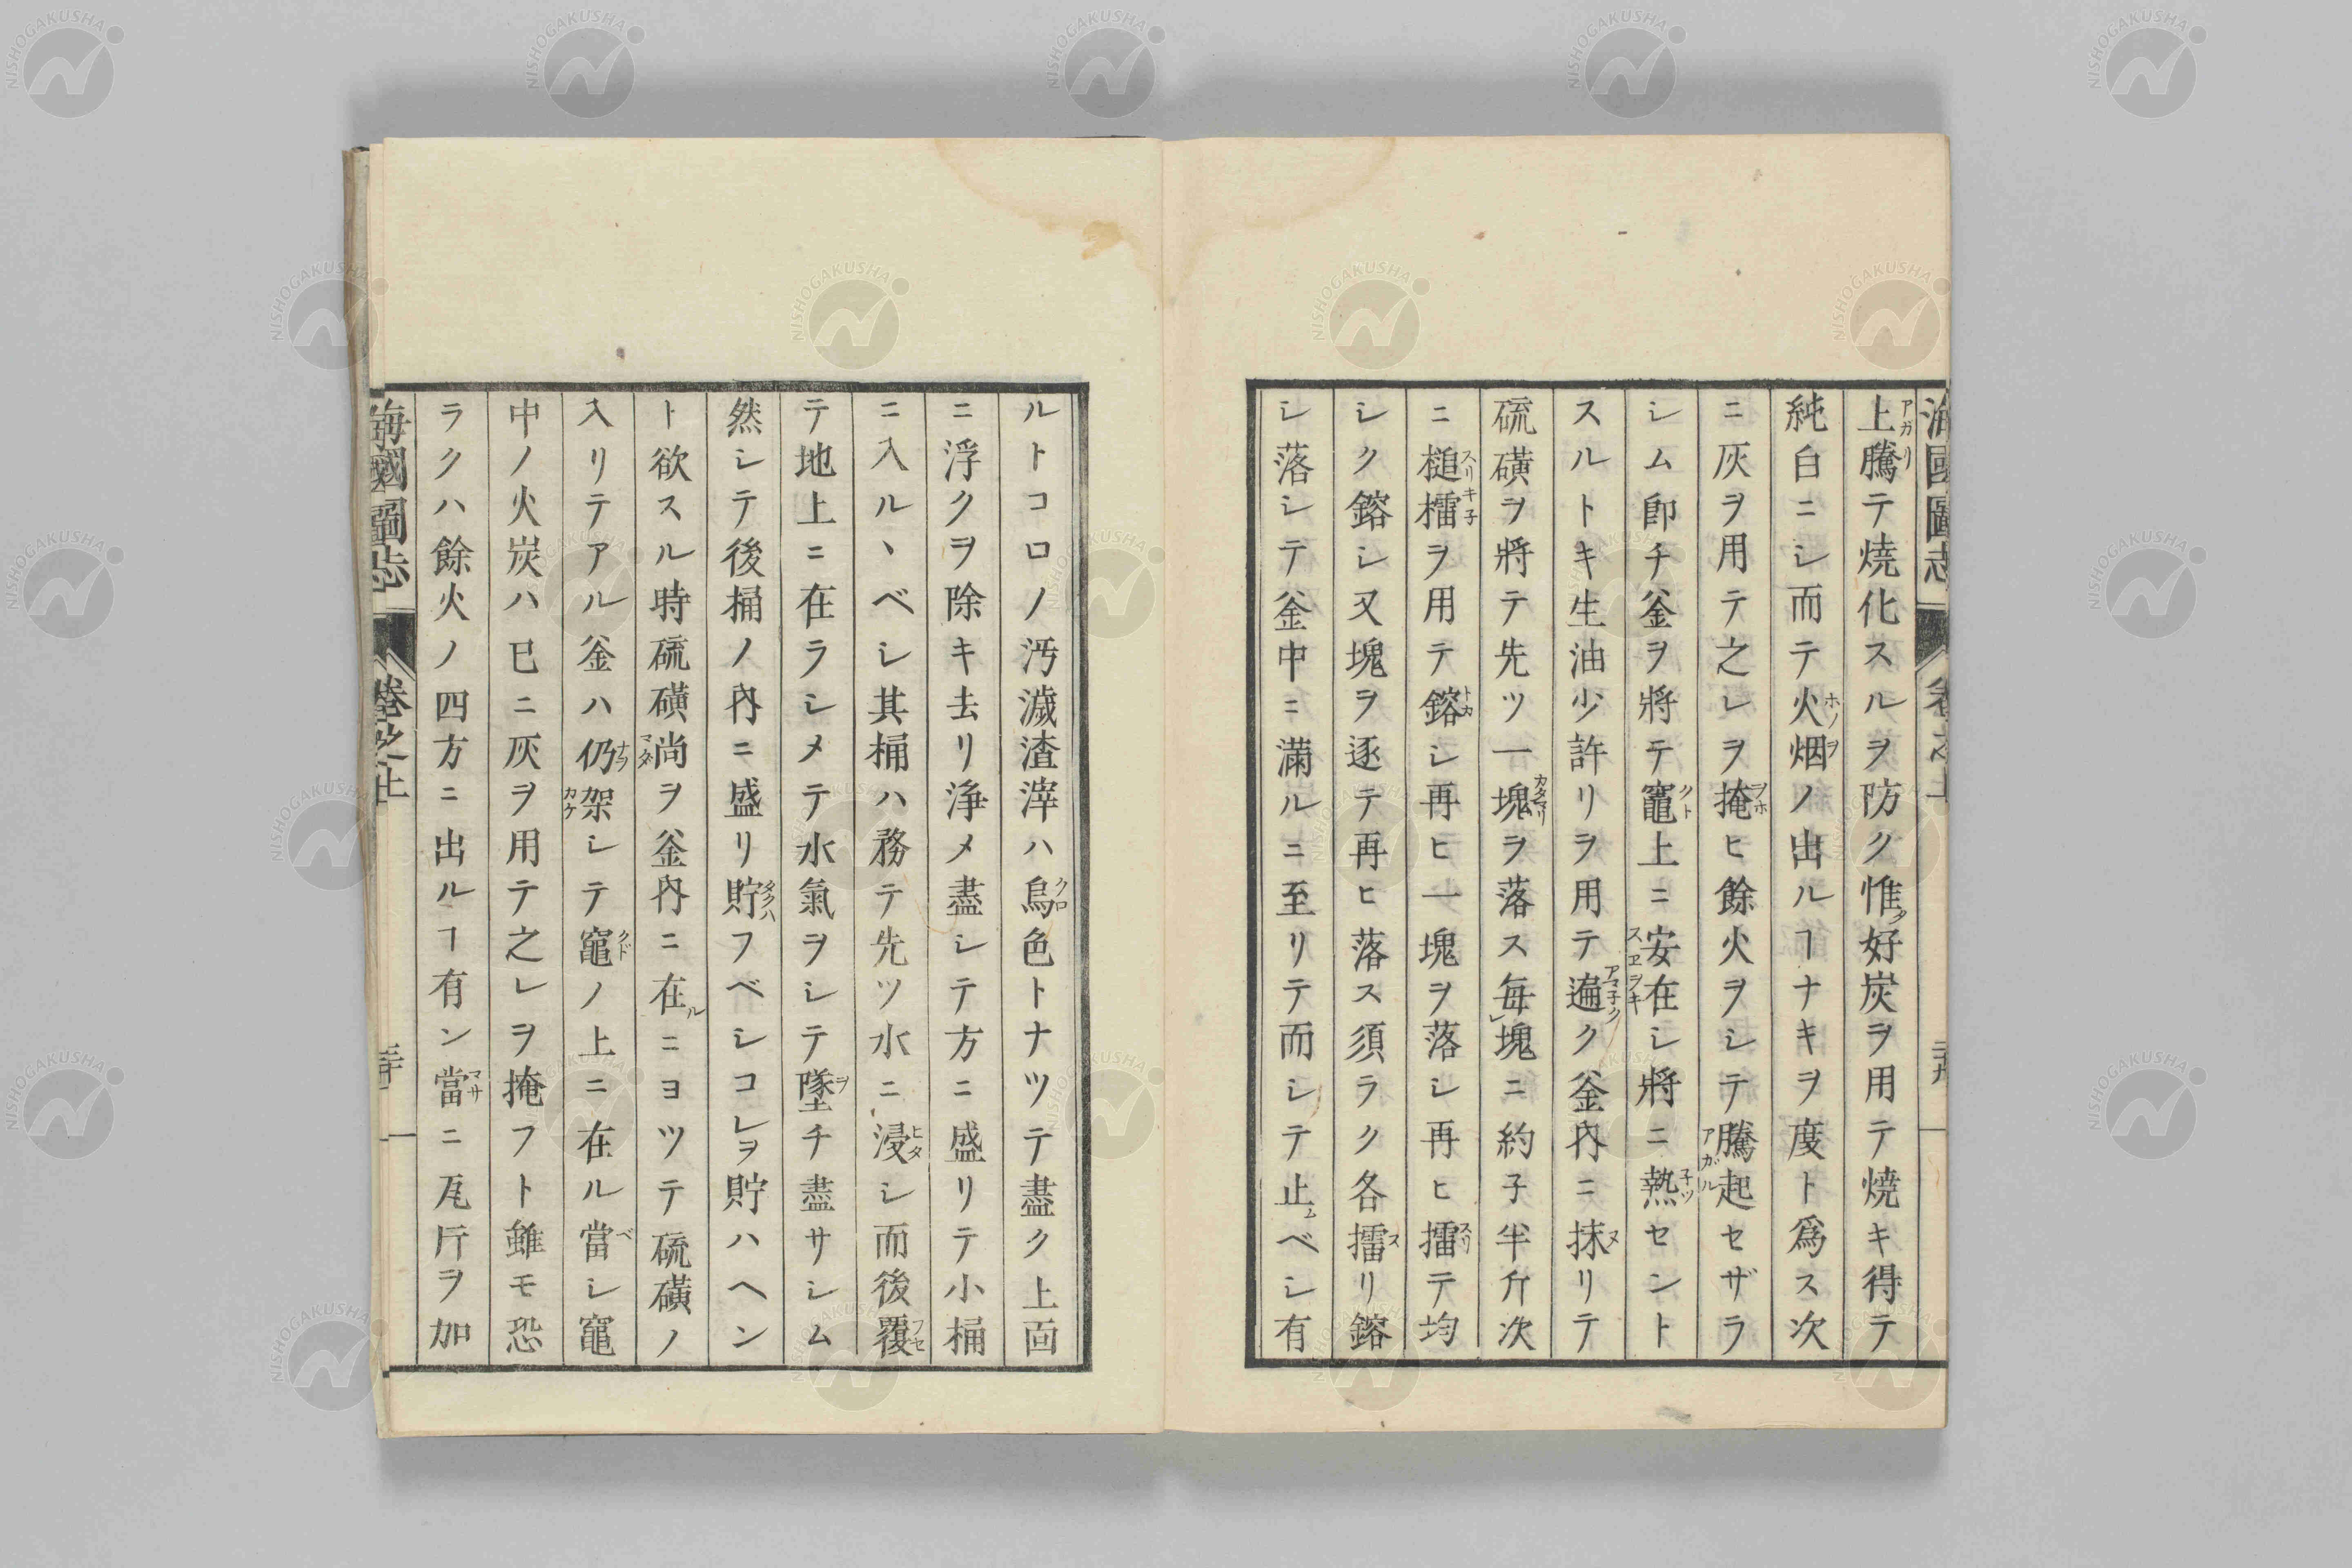 海國圖志 卷之上
上騰テ焼化スルヲ防ク惟好炭ヲ用テ焼キ得テ
純白ニシ而テ火烟ノ出ルヿナキヲ度ト爲ス次
ニ灰ヲ用テ之レヲ掩ヒ餘火ヲシテ騰起セザラ
シム卽チ釜ヲ將テ竈上ニ安在シ將ニ熱セント
スルトキ生油少許リヲ用テ遍ク釜內ニ抹リテ
硫磺ヲ將テ先ツ一塊ヲ落ス每塊ニ約子半斤次
ニ槌檑ヲ用テ鎔シ再ヒ一塊ヲ落シ再ヒ擂テ均
シク鎔シ又塊ヲ逐テ再ヒ落ス須ラク各擂リ鎔
シ落シテ釜中ニ滿ルニ至リテ而シテ止ムベシ有
ルトコロノ汚濊渣滓ハ烏色トナツテ盡ク上面
ニ浮クヲ除キ去リ淨メ盡シテ方ニ盛リテ小桶
ニ入ルヽベシ其桶ハ務テ先ツ水ニ浸シ而後覆
テ地上ニ在ラシメテ水氣ヲシテ墜チ盡サシム
然シテ後桶ノ內ニ盛リ貯フベシコレヲ貯ハヘン
ト欲スル時硫磺尚ヲ釜內ニ在ルニヨツテ硫磺ノ
入リテアル釜ハ仍架シテ竈ノ上ニ在ル當シ竈
中ノ火炭ハ已ニ灰ヲ用テ之レヲ掩フト雖モ恐
ラクハ餘火ノ四方ニ出ルヿ有ン當ニ瓦斤ヲ加
海國圖志 卷之上 三十
NISHOGAKUSHA